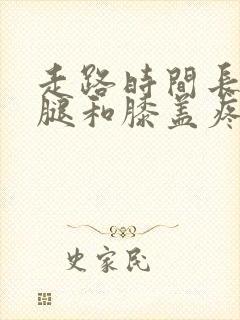 走路時間長
腿和膝盖疼
史家民